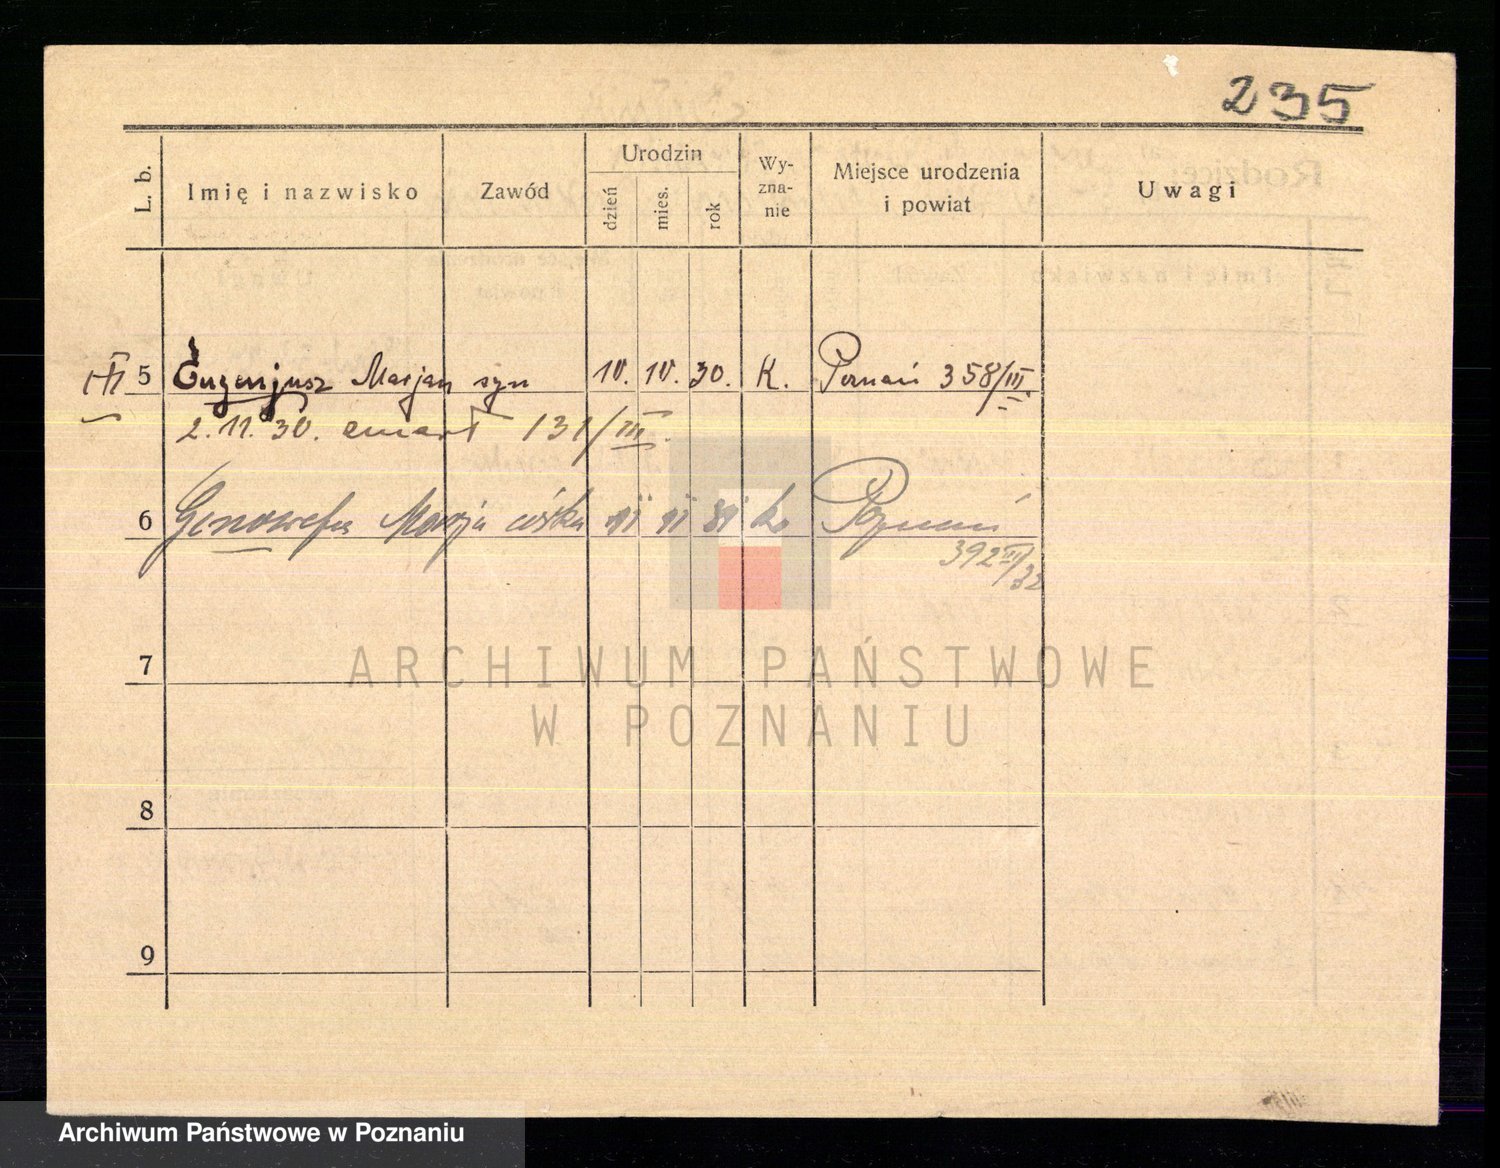 235
L. b. Imię i nazwisko Zawód Urodzin dzień mies. rok Wy-zna-nie Miejsce urodzenia i powiat Uwagi
5 Eugenjusz Marjan syn 10. 10. 30. K. Poznań 358/III
2. 11. 30. zmarł 131/III.
6 Genowefa Marja córka 11 11 31 k. Poznań
392 III/32
7
8
9
ARCHIWUM PAŃSTWOWE
W POZNANIU
Archiwum Państwowe w Poznaniu